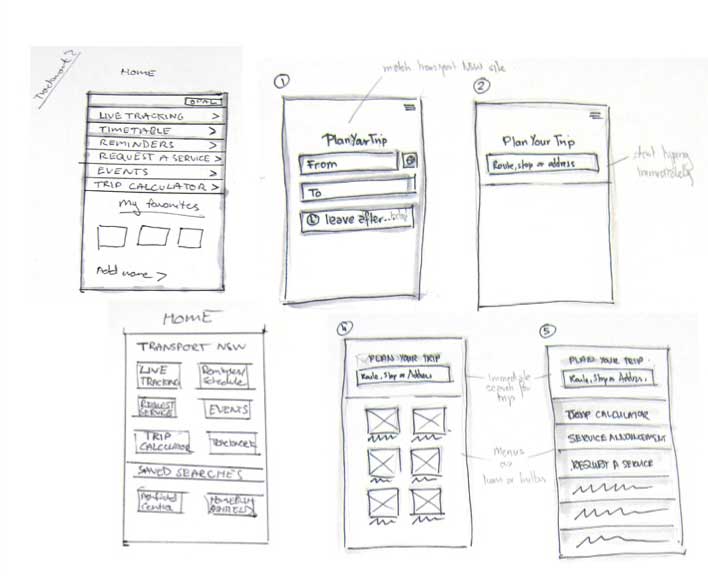 Trackwork?
HOME
OPAL
LIVE TRACKING >
TIMETABLE >
REMINDERS >
REQUEST A SERVICE >
EVENTS >
TRIP CALCULATOR >
My favorites
Add more >
1
match transport NSW site
Plan Your Trip
From
To
leave after..
2
Plan Your Trip
Route, stop or address
start typing
immediately
HOME
TRANSPORT NSW
LIVE
TRACKING
Schedule
REQUEST
SERVICE
EVENTS
TRIP
CALCULATOR
TRACKWORK
SAVED SEARCHES
Central
4
PLAN YOUR TRIP
Route, Stop or Address
Immediate
search for
trip
Menus
as
icons or bullets
5
PLAN YOUR TRIP
Route, Stop or Address.
TRIP CALCULATOR
SERVICE ANNOUNCEMENT
REQUEST A SERVICE